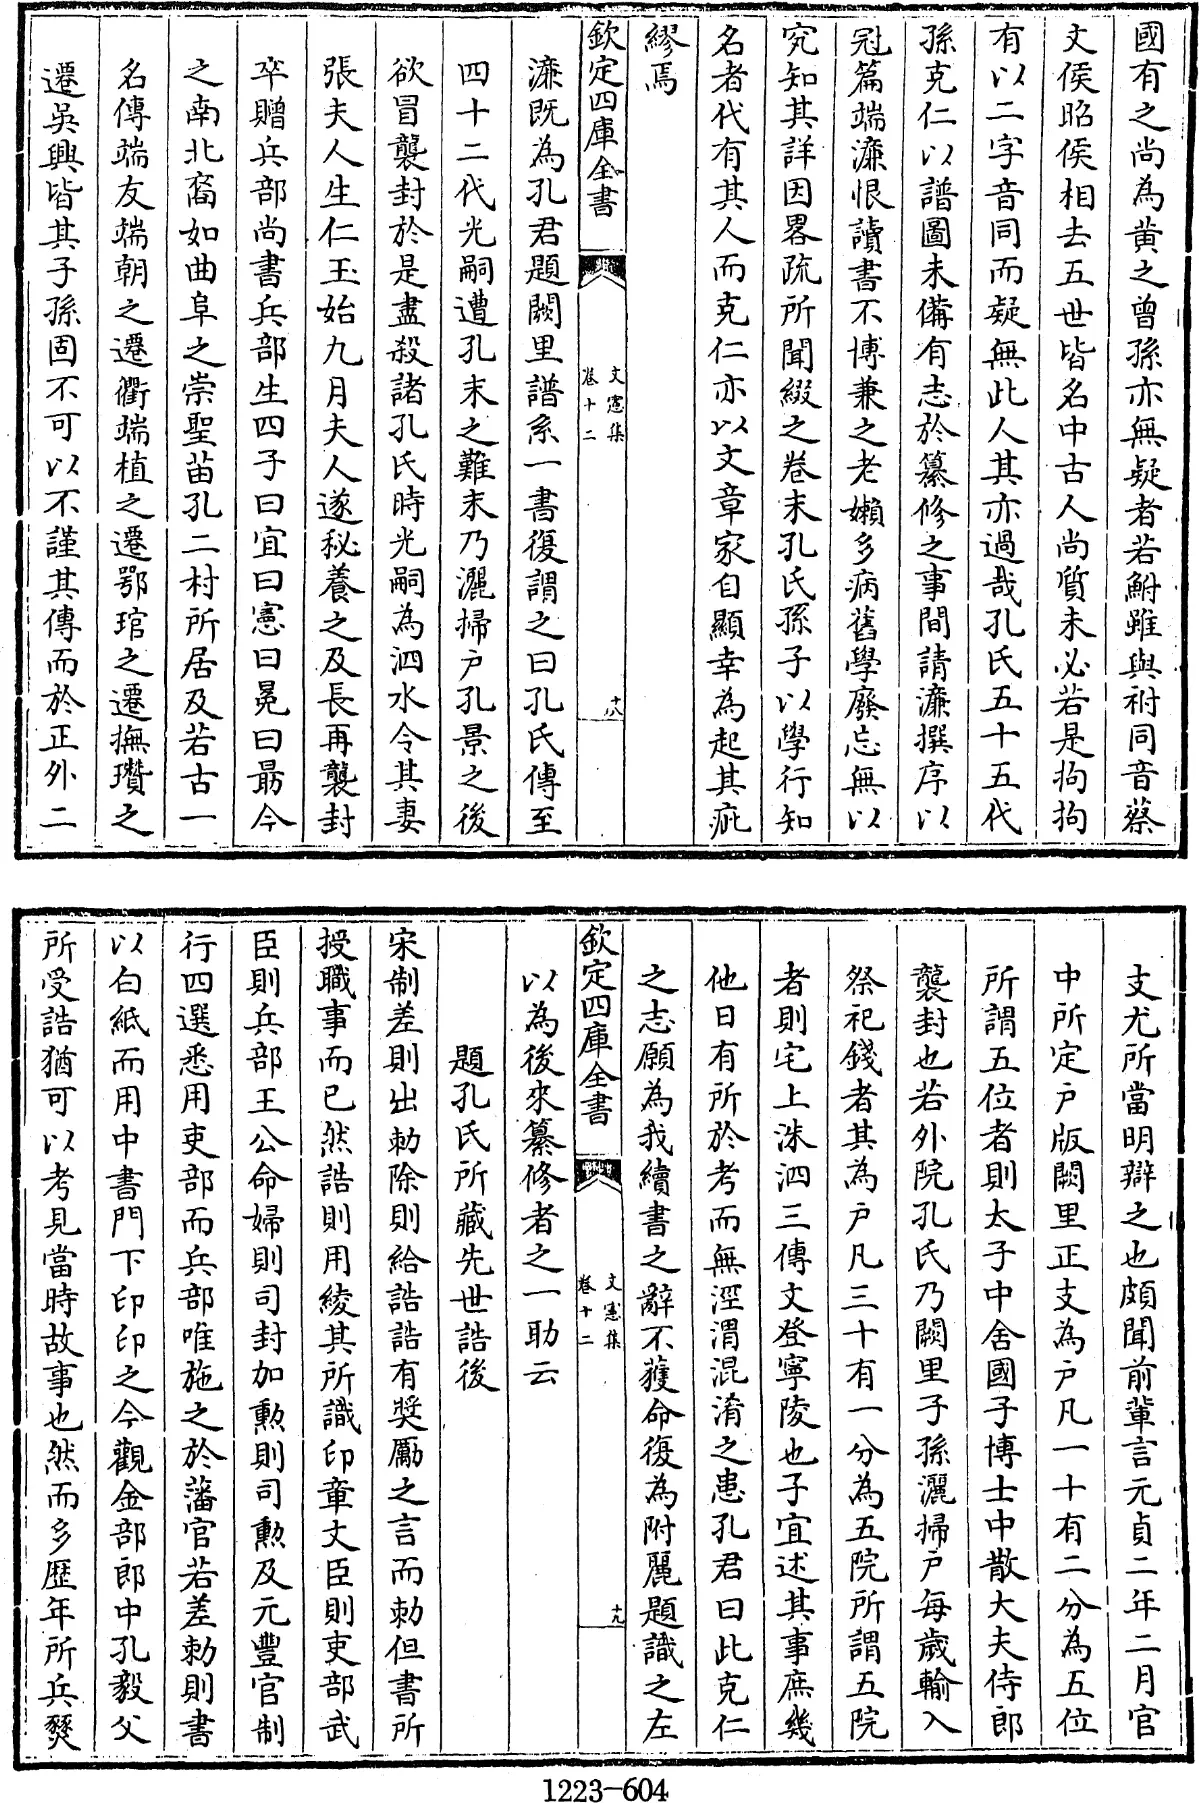 國有之尚為黃之曾孫亦無疑者若鮒雖與祔同音蔡
文侯昭侯相去五世皆名中古人尚質未必若是拘拘
有以二字音同而疑無此人其亦過哉孔氏五十五代
孫克仁以譜圖未備有志於纂修之事間請濂撰序以
冠篇端濂恨讀書不博兼之老嬾多病舊學廢忘無以
究知其詳因畧疏所聞綴之卷末孔氏孫子以學行知
名者代有其人而克仁亦以文章家自顯幸為起其疵
繆焉
欽定四庫全書
文憲集
卷十二
十八
濂既為孔君題闕里譜系一書復謂之曰孔氏傳至
四十二代光嗣遭孔末之難末乃灑掃户孔景之後
欲冒襲封於是盡殺諸孔氏時光嗣為泗水令其妻
張夫人生仁玉始九月夫人遂秘養之及長再襲封
卒贈兵部尚書兵部生四子曰宜曰憲曰冕曰勗今
之南北裔如曲阜之崇聖苗孔二村所居及若古一
名傳端友端朝之遷衢端植之遷鄂琯之遷撫瓚之
遷吳興皆其子孫固不可以不謹其傳而於正外二
支尤所當明辯之也頗聞前輩言元貞二年二月官
中所定户版闕里正支為户凡一十有二分為五位
所謂五位者則太子中舍國子博士中散大夫侍郎
襲封也若外院孔氏乃闕里子孫灑掃户每歲輸入
祭祀錢者其為户凡三十有一分為五院所謂五院
者則宅上洙泗三傳文登寧陵也子宜述其事庶幾
他日有所於考而無涇渭混淆之患孔君曰此克仁
之志願為我續書之辭不獲命復為附麗題識之左
欽定四庫全書
文憲集
卷十二
十九
以為後來纂修者之一助云
題孔氏所藏先世誥後
宋制差則出勅除則給誥誥有奬厲之言而勅但書所
授職事而已然誥則用綾其所識印章文臣則吏部武
臣則兵部王公命婦則司封加勲則司勲及元豐官制
行四選悉用吏部而兵部唯施之於藩官若差勅則書
以白紙而用中書門下印印之今觀金部郎中孔毅父
所受誥猶可以考見當時故事也然而多歴年所兵燹
1223-604